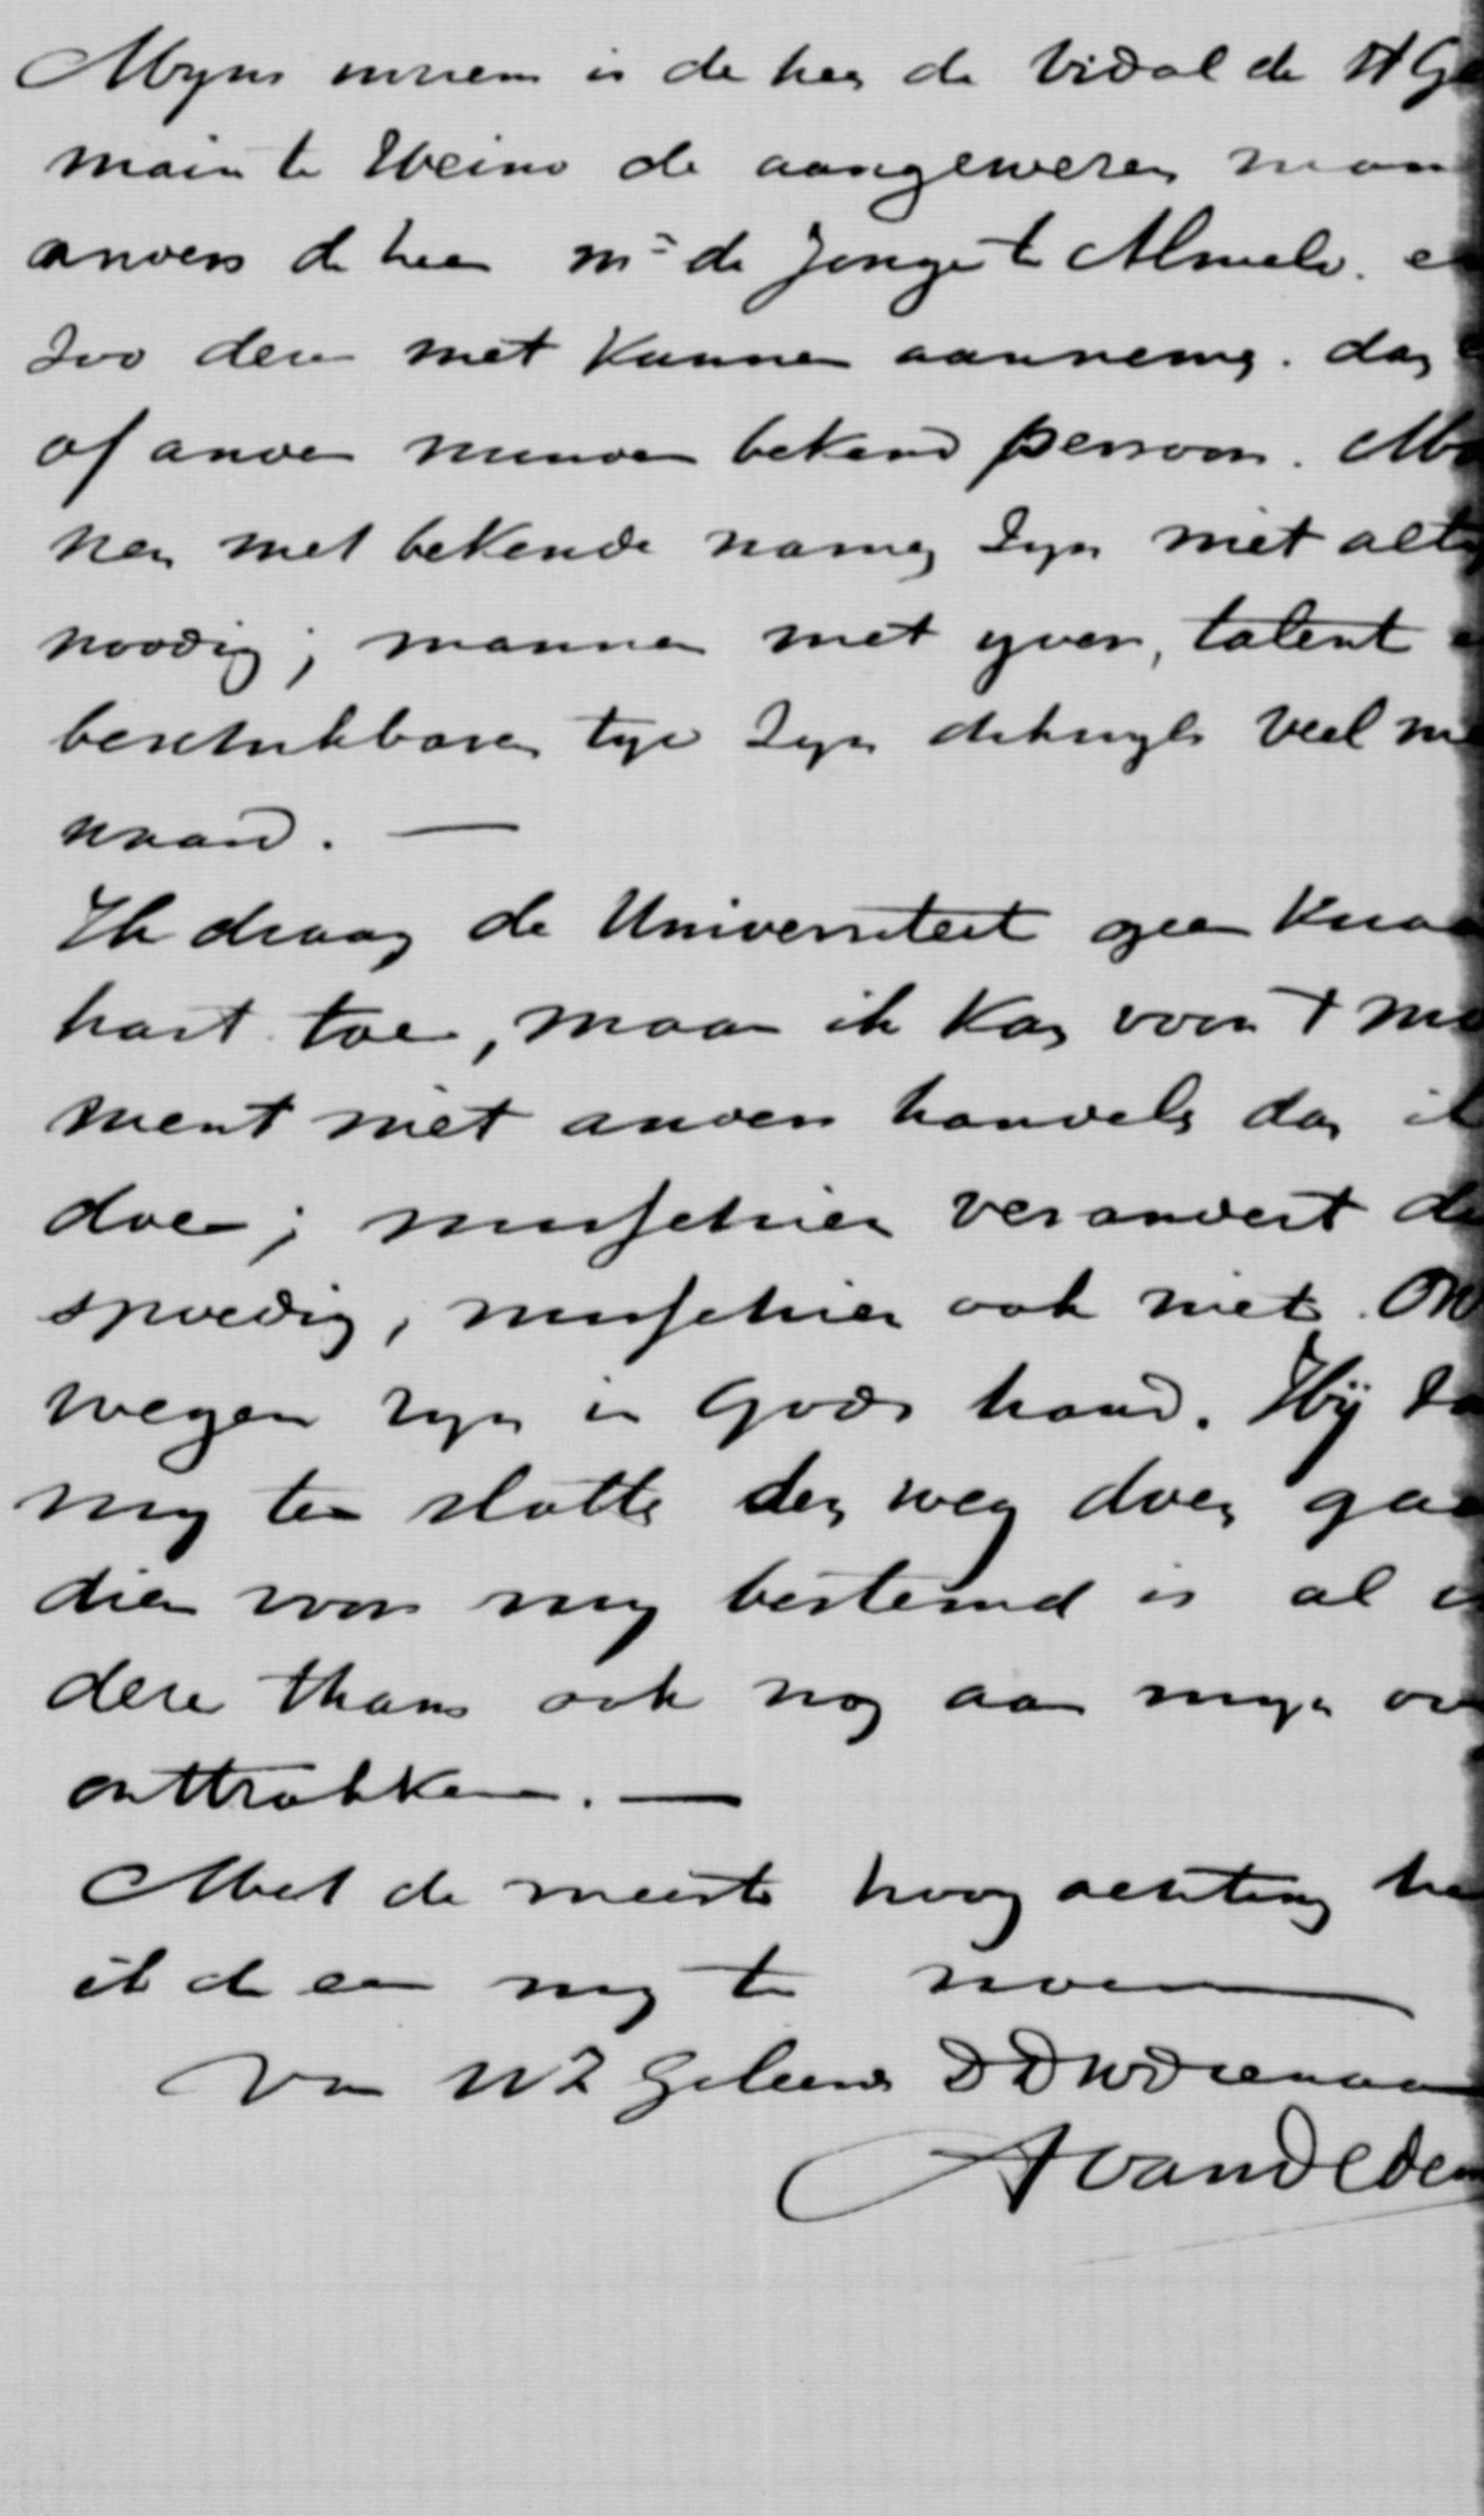 Myns inziens is de heer de Vidal de St Ge
main te Heino de aangewezen man
anders de heer mr de Jonge te Almelo. e
zoo deze niet kunnen aannemen. dan
of ander minder bekend persoon. Ma
nen met bekende namen zyn niet alty
noodig; mannen met yver, talent e
beschikbaren tyd zyn dikwyls veel me
waard. —
Ik draag de Universiteit geen kwaa
hart toe, maar ik kan voor 't mo
ment niet anders handelen dan ik
doe; misschien verandert de
spoedig, misschien ook niet. On
wegen zyn in Gods hand. Hij za
my ten slotte den weg doen gaa
dien voor my bestemd is al i
deze thans ook nog aan myn oo
onttrokken. —
Met de meeste hoogachting he
ik de eer my te noemen
van WZGeleerde DDWDienaar
A van Deden